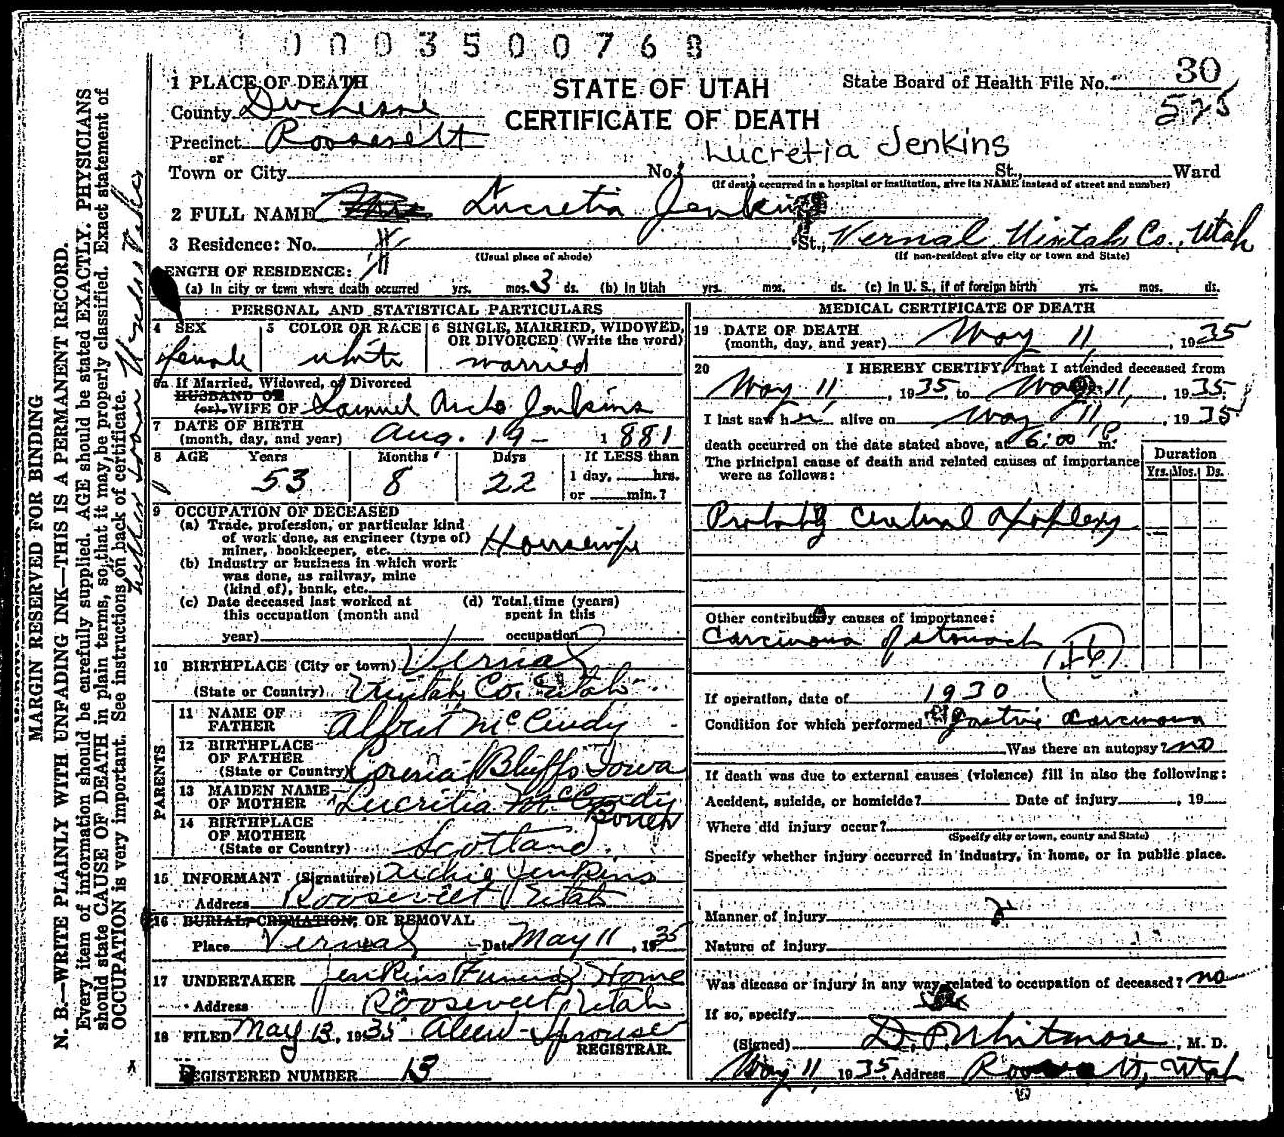 0003500768
STATE OF UTAH
CERTIFICATE OF DEATH
State Board of Health File No. 30
575
1 PLACE OF DEATH
County Duchesne
Precinct Roosevelt
or
Town or City No. St., Ward
Lucretia Jenkins
(If death occurred in a hospital or institution, give its NAME instead of street and number)
2 FULL NAME Lucretia Jenkins
3 Residence: No. St., Vernal Uintah Co., Utah
(Usual place of abode) (If non-resident give city or town and State)
LENGTH OF RESIDENCE:
(a) In city or town where death occurred yrs. mos. 3 ds. (b) in Utah yrs. mos. ds. (c) in U. S., if of foreign birth yrs. mos. ds.
PERSONAL AND STATISTICAL PARTICULARS
4 SEX
female
5 COLOR OR RACE
white
6 SINGLE, MARRIED, WIDOWED, OR DIVORCED (Write the word)
married
6a If Married, Widowed, or Divorced
HUSBAND OF
(or) WIFE OF Samuel Jenkins
7 DATE OF BIRTH
(month, day, and year) Aug. 19 - 1881
8 AGE Years Months Days If LESS than
53 8 22 1 day, hrs.
or min.?
9 OCCUPATION OF DECEASED
(a) Trade, profession, or particular kind
of work done, as engineer (type of)
miner, bookkeeper, etc. Housewife
(b) Industry or business in which work
was done, as railway, mine
(kind of), bank, etc.
(c) Date deceased last worked at
this occupation (month and
year)
(d) Total time (years)
spent in this
occupation
10 BIRTHPLACE (City or town) Vernal
(State or Country) Uintah Co. Utah
PARENTS
11 NAME OF
FATHER Alfred McCurdy
12 BIRTHPLACE
OF FATHER
(State or Country) Bluffs Iowa
13 MAIDEN NAME
OF MOTHER Lucretia McCurdy
14 BIRTHPLACE
OF MOTHER
(State or Country) Scotland.
15 INFORMANT (Signature) Jenkins
Address Roosevelt Utah
16 BURIAL, CREMATION, OR REMOVAL
Place Vernal Date May 11, 1935
17 UNDERTAKER Jenkins Funeral Home
Address Roosevelt Utah
18 FILED May 13, 1935 Sprouse
REGISTRAR.
REGISTERED NUMBER 13
MEDICAL CERTIFICATE OF DEATH
19 DATE OF DEATH
(month, day, and year) May 11, 1935
20 I HEREBY CERTIFY, That I attended deceased from
May 11, 1935, to May 11, 1935
I last saw her alive on May 11, 1935
death occurred on the date stated above, at 6:00 P m.
The principal cause of death and related causes of importance
were as follows:
Duration
Yrs. Mos. Ds.
Probably Cerebral apoplexy
Other contributory causes of importance:
Carcinoma of stomach
(46)
If operation, date of 1930
Condition for which performed Gastric Carcinoma
Was there an autopsy? no
If death was due to external causes (violence) fill in also the following:
Accident, suicide, or homicide? Date of injury , 19
Where did injury occur?
(Specify city or town, county and State)
Specify whether injury occurred in industry, in home, or in public place.
Manner of injury
Nature of injury
Was disease or injury in any way related to occupation of deceased? no
If so, specify
(Signed) D. P. Whitmore, M. D.
May 11, 1935. Address Roosevelt, Utah
MARGIN RESERVED FOR BINDING
N. B.—WRITE PLAINLY WITH UNFADING INK—THIS IS A PERMANENT RECORD.
Every item of information should be carefully supplied. AGE should be stated EXACTLY. PHYSICIANS
should state CAUSE OF DEATH in plain terms, so that it may be properly classified. Exact statement of
OCCUPATION is very important. See instructions on back of certificate.